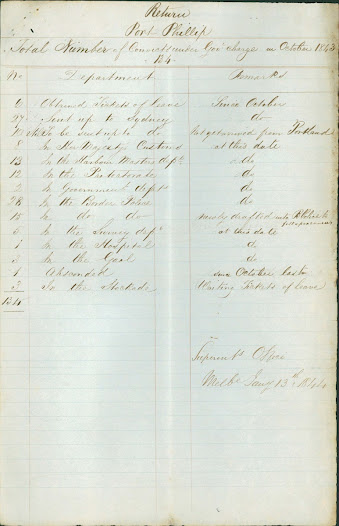 Return
Port Phillip
Total Number of Convicts under Gov charge in October 1843
184
No Department Remarks
6 Obtained Tickets of Leave Since October
27 Sent up to Sydney do
to be sent up to do not yet arrived from Portland
8 In Her Majesty Customs at this date
13 In the Harbour Masters dept do
12 In the Protectorate do
2 In Government dept do
28 In the Border Police do
15 In do do newly drafted into
5 In the Survey dept at this date
1 In the Hospital do
3 In the Gaol do
1 Absconded since October last
3 In the Stockade Waiting Tickets of leave
134
Superint's Office
Melbe Jany 13th 1844